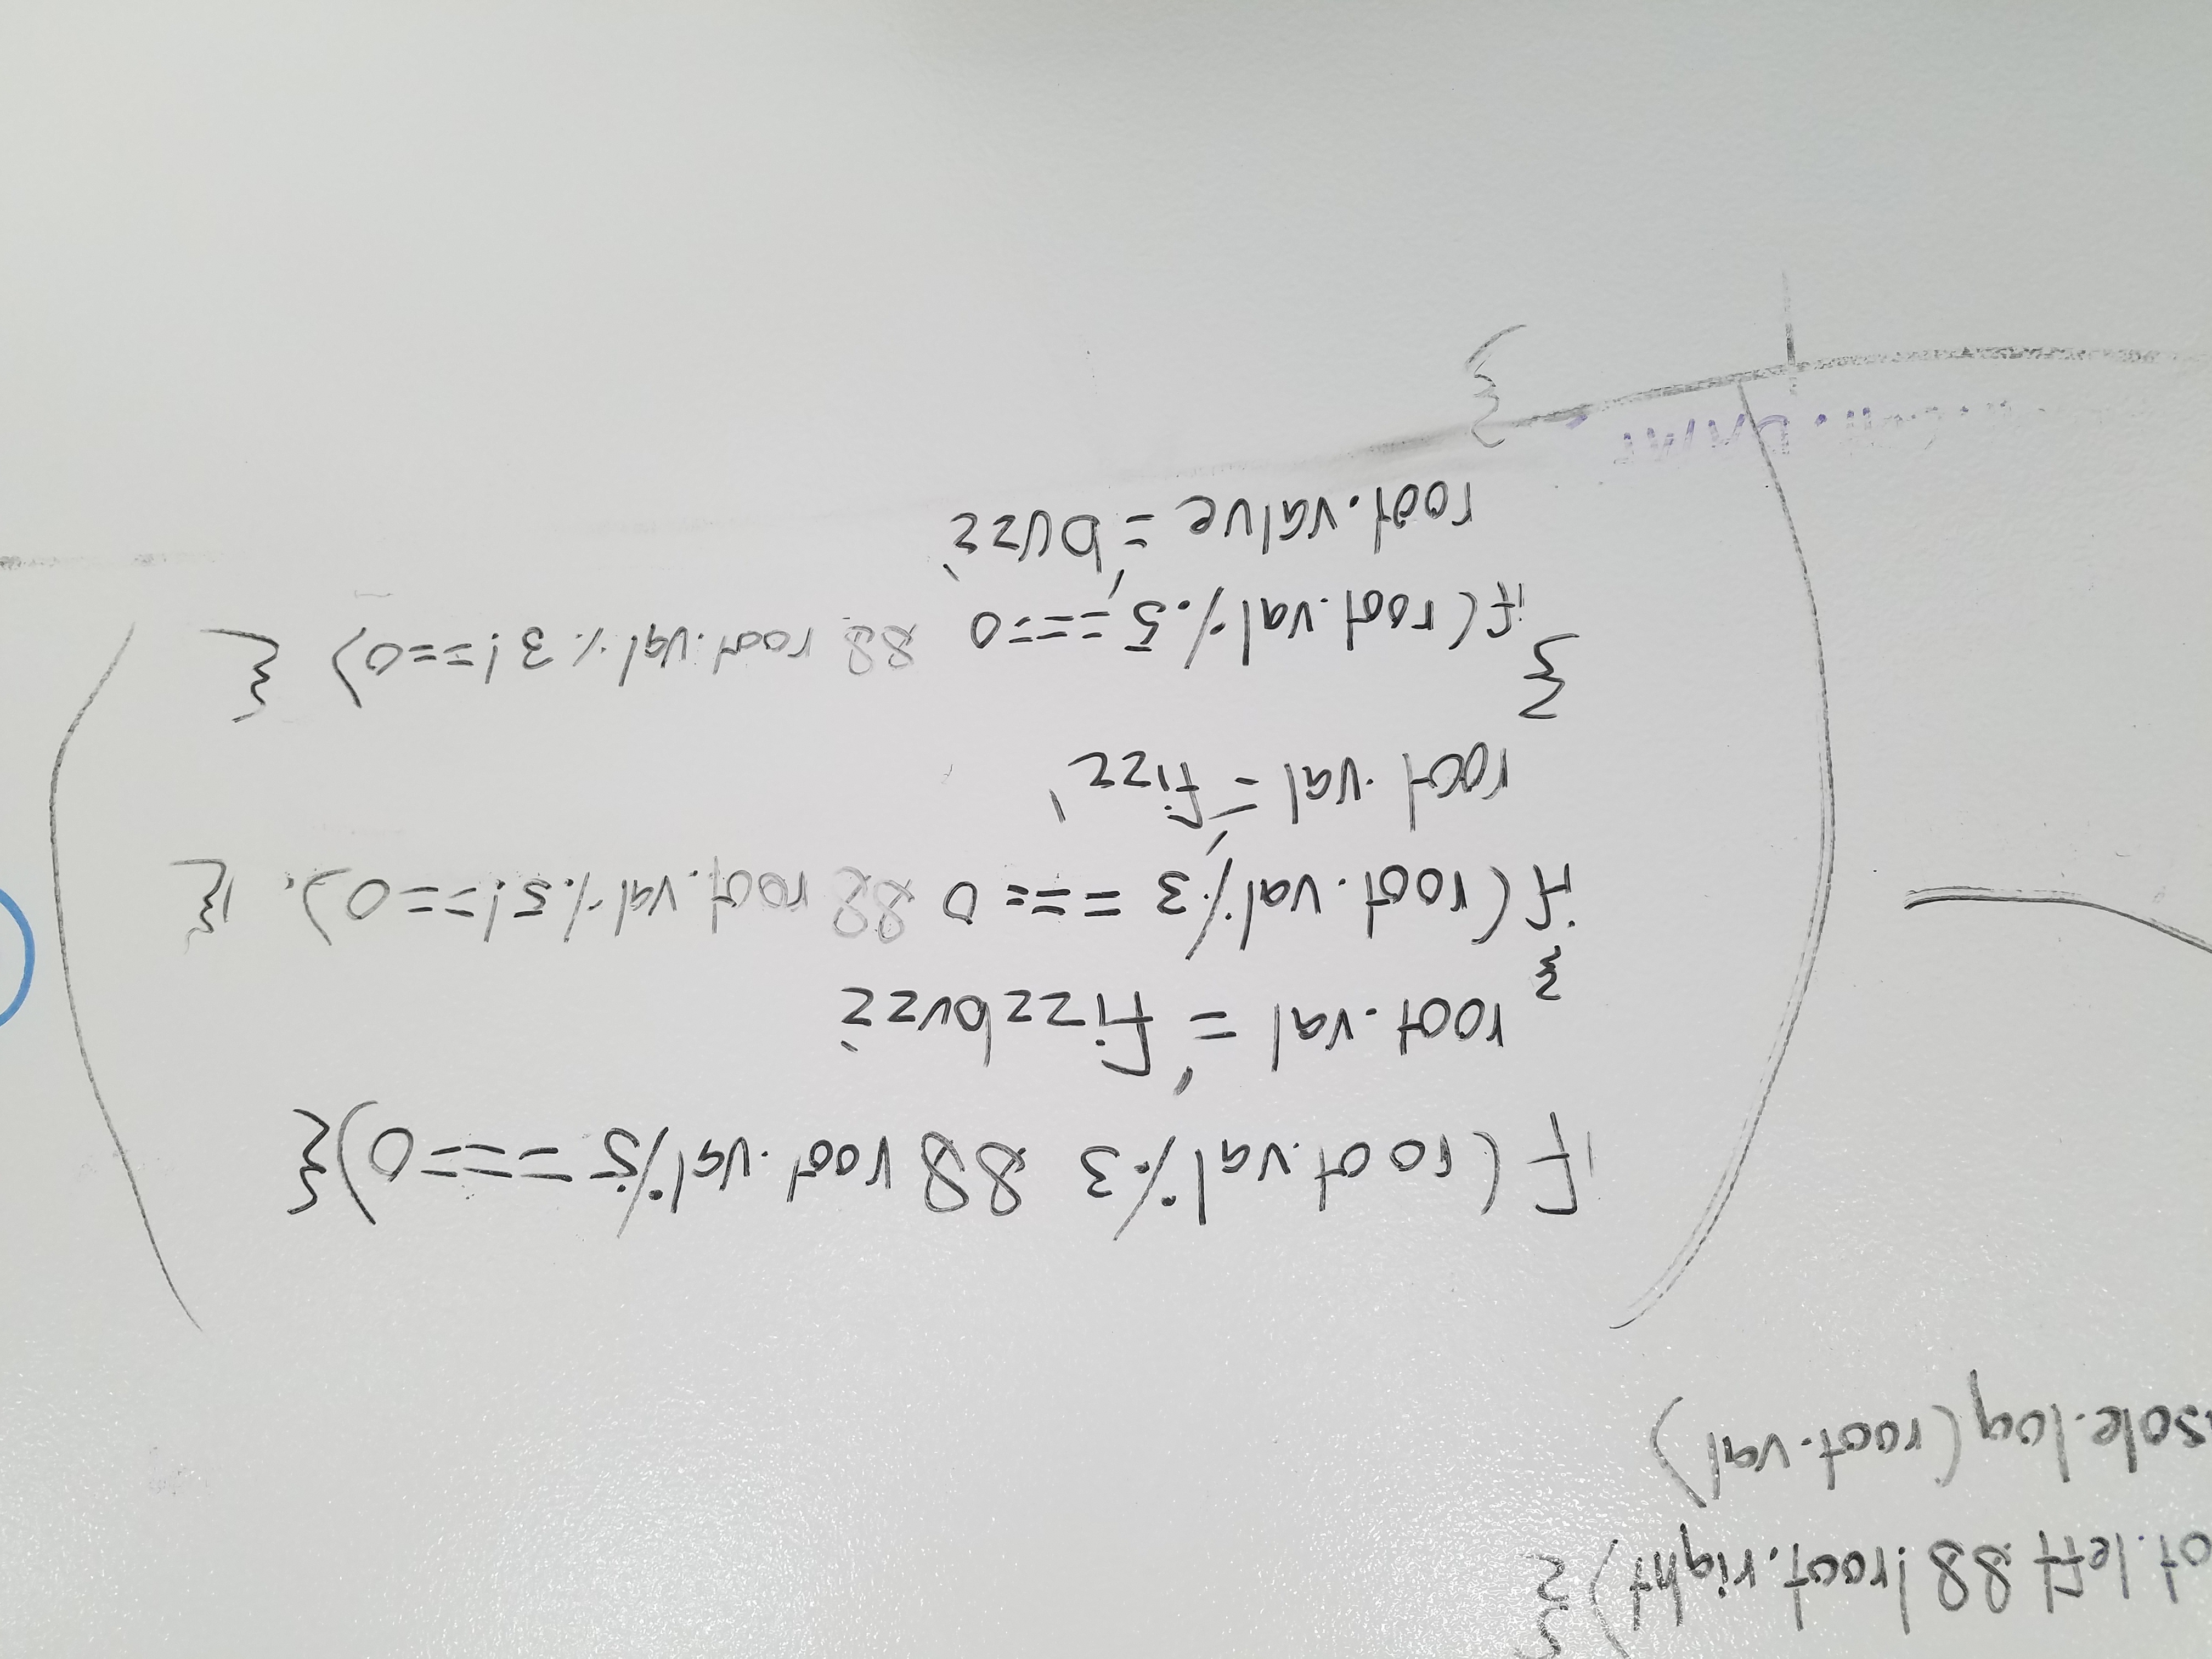 ot.left && !root.right) {
sole.log(root.val)
if (root.val % 3 && root.val % 5 === 0) {
root.val = 'fizzbuzz'
}
if (root.val % 3 === 0 && root.val % 5 !== 0). {
root.val = 'fizz'
}
if (root.val % .5 === 0 && root.val % 3 !== 0) {
root.value = 'buzz'
}